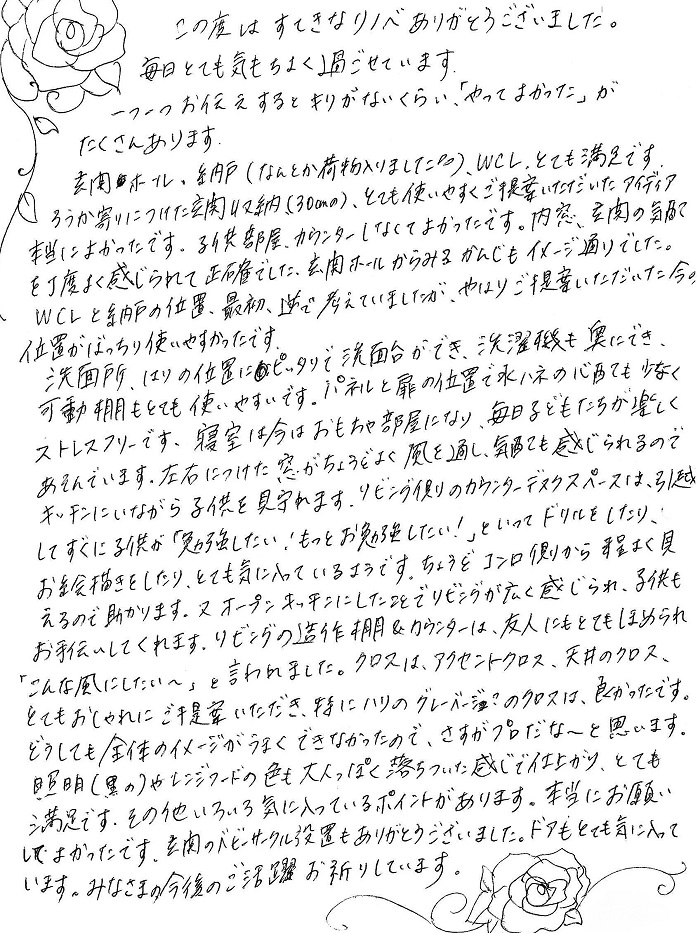 この度は すてきなリノベ ありがとうございました。
毎日とても気もちよく過ごせています。
一つ一つお伝えするとキリがないくらい、「やってよかった」が
たくさんあります。
玄関ホール、納戸(なんとか荷物入りました^^)、WCL、とても満足です。
ろうか寄りにつけた玄関収納(30cmの)、とても使いやすくご提案いただいたアイディア
本当によかったです。子供部屋、カウンターしなくてよかったです。内窓、玄関の気配
を丁度よく感じられて正確でした、玄関ホールからみるかんじもイメージ通りでした。
WCLと納戸の位置、最初、逆で考えていましたが、やはりご提案いただいた今の
位置がばっちり使いやすかったです。
洗面所、はりの位置にピッタリで洗面台ができ、洗濯機も奥にでき、
可動棚もとても使いやすいです。パネルと扉の位置で水ハネの心配も少なく
ストレスフリーです、寝室は今はおもちゃ部屋になり、毎日子どもたちが楽しく
あそんでいます。左右につけた窓がちょうどよく風を通し、気配も感じられるので
キッチンにいながら子供を見守れます。リビング側のカウンターデスクスペースは、引越
してすぐに子供が「勉強したい!もっとお勉強したい!」といってドリルをしたり、
お絵描きをしたり、とても気に入っているようです。ちょうどコンロ側から程よく見
えるので助かります。又オープンキッチンにしたことでリビングが広く感じられ、子供も
お手伝いしてくれます。リビングの造作棚&カウンターは、友人にもとてもほめられ
「こんな風にしたい〜」と言われました。クロスは、アクセントクロス、天井のクロス、
とてもおしゃれにご提案いただき、特にハリのグレーベージュ?のクロスは、良かったです。
どうしても全体のイメージがうまくできなかったので、さすがプロだな〜と思います。
照明(黒の)やレンジフードの色も大人っぽく落ちついた感じで仕上がり、とても
満足です。その他いろいろ気に入っているポイントがあります。本当にお願い
してよかったです、玄関のベビーサークル設置もありがとうございました。ドアもとても気に入って
います。みなさまの今後のご活躍お祈りしています。